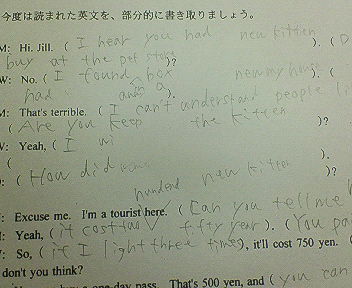 今度は読まれた英文を、部分的に書き取りましょう。
M: Hi. Jill. ( I hear you had new kitten ). ( D
buy at the pet store )?
W: No. ( I found box near my house
had and a ).
M: That's terrible. ( I can't understand people li
( Are you keep the kitten )?
W: Yeah, ( I wi
( ).
( How did new kitten )?
hundred
: Excuse me. I'm a tourist here. ( Can you tell me
: Yeah, ( it cost two fifty year ). ( You pa
: So, ( if I light three times ), it'll cost 750 yen. (
don't you think?
buy a one-day pass. That's 500 yen, and ( you can